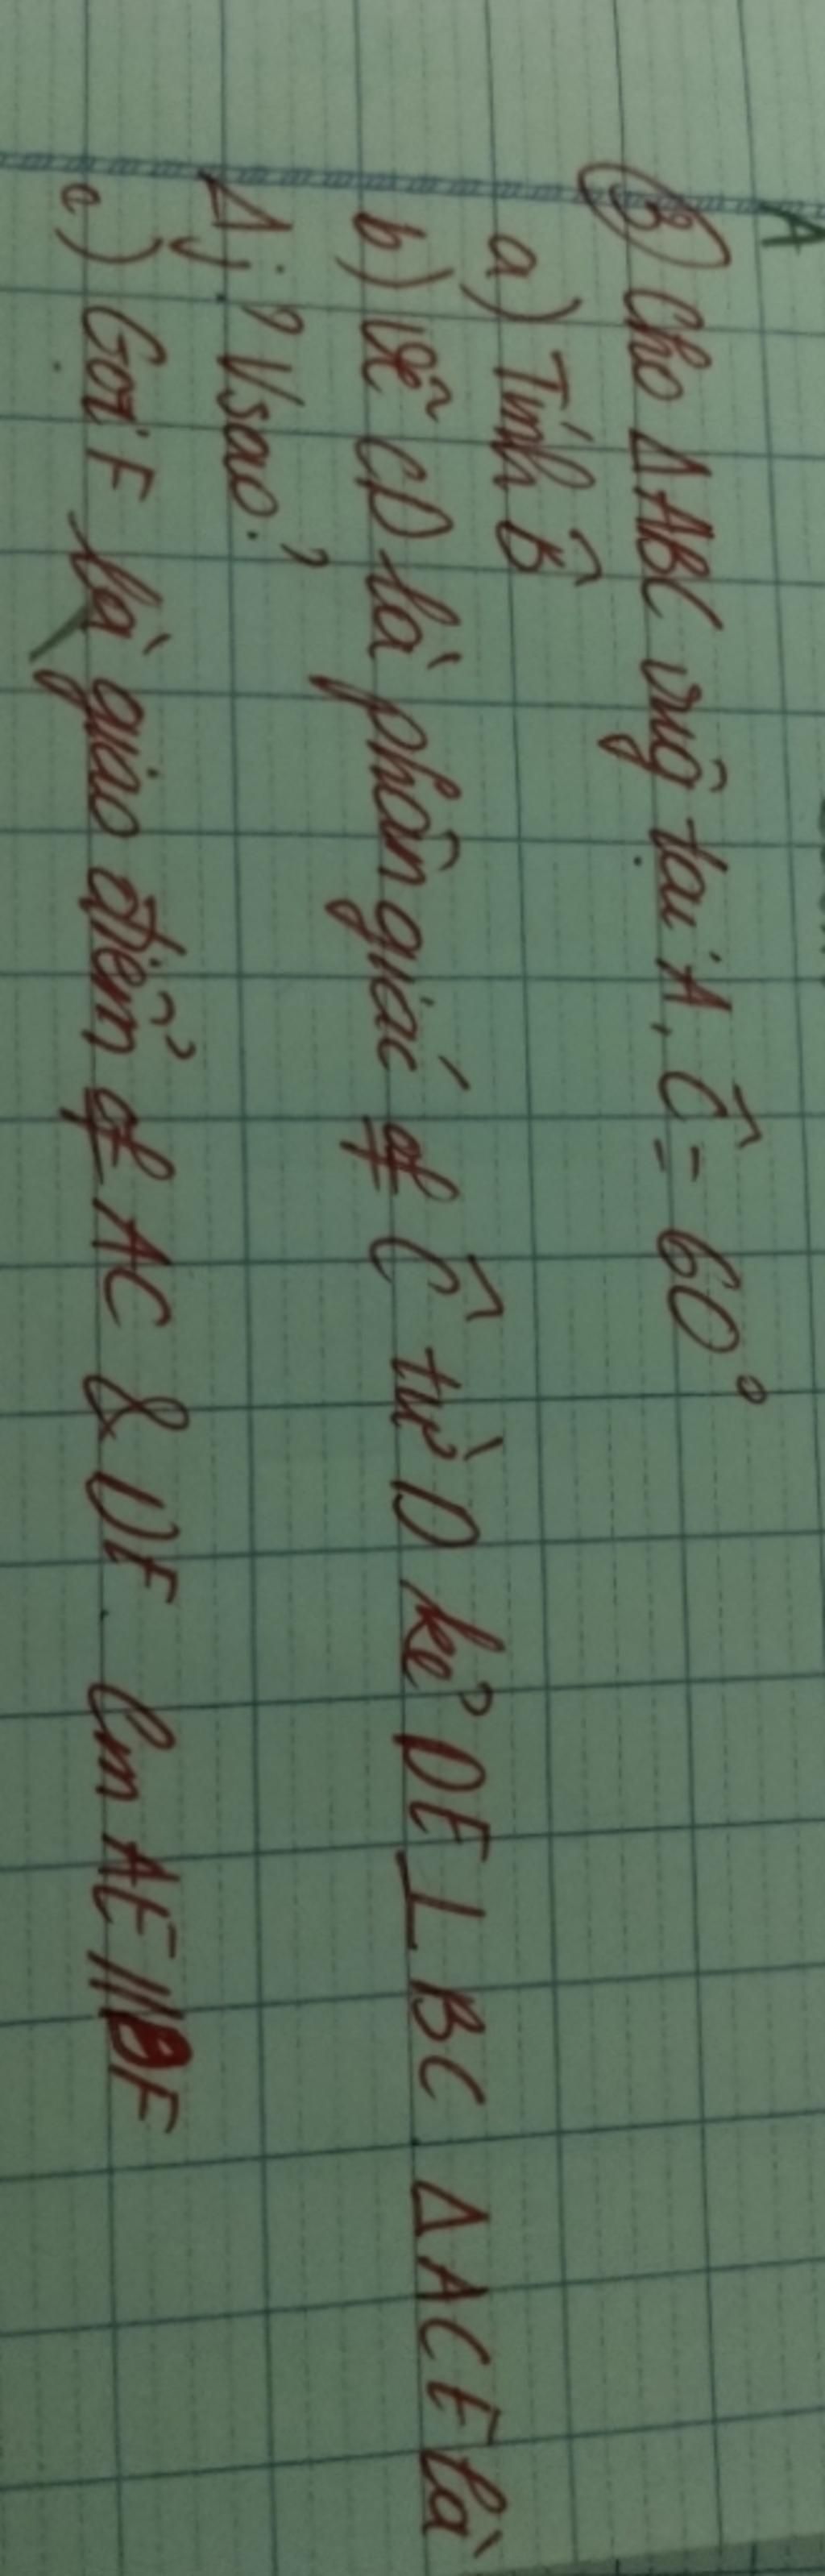 A
③ Cho ΔABC vuĝ tại A, Ĉ = 60°
a) Tính B̂
b) Vẽ CD là phân giác of Ĉ từ D kẻ DE ⊥ BC. ΔACE là
Δj? Vsao?
c) Gọi F là giao điểm of AC & DE. Cm AE // BF